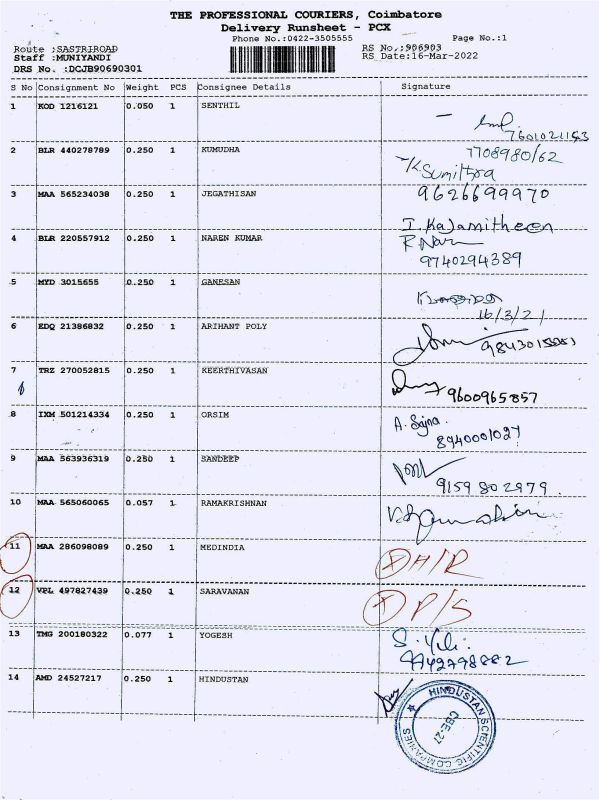 THE PROFESSIONAL COURIERS, Coimbatore
Delivery Runsheet - PCX
Phone No.:0422-3505555
Page No.:1
Route :SASTRIROAD
RS No.:906903
Staff :MUNIYANDI
RS Date:16-Mar-2022
DRS No. :DCJB90690301
S No Consignment No Weight PCS Consignee Details Signature
1 KOD 1216121 0.050 1 SENTHIL
7601021163
2 BLR 440278789 0.250 1 KUMUDHA 7708980162
K Sumithra
3 MAA 565234038 0.250 1 JEGATHISAN 9626699970
I. Kajamitheen
4 BLR 220557912 0.250 1 NAREN KUMAR
9740294389
5 MYD 3015655 0.250 1 GANESAN
16/3/21
6 EDQ 21386832 0.250 1 ARIHANT POLY
7 TRZ 270052815 0.250 1 KEERTHIVASAN
9600965857
8 IXM 501214334 0.250 1 ORSIM A. Sajna.
8940001027
9 MAA 563936319 0.250 1 SANDEEP
9159 802979
10 MAA 565060065 0.057 1 RAMAKRISHNAN
11 MAA 286098089 0.250 1 MEDINDIA
12 VPL 497827439 0.250 1 SARAVANAN P/S
13 TMG 200180322 0.077 1 YOGESH
9942798882
14 AMD 24527217 0.250 1 HINDUSTAN
HINDUSTAN SCIENTIFIC COMPANIES
CBE-27